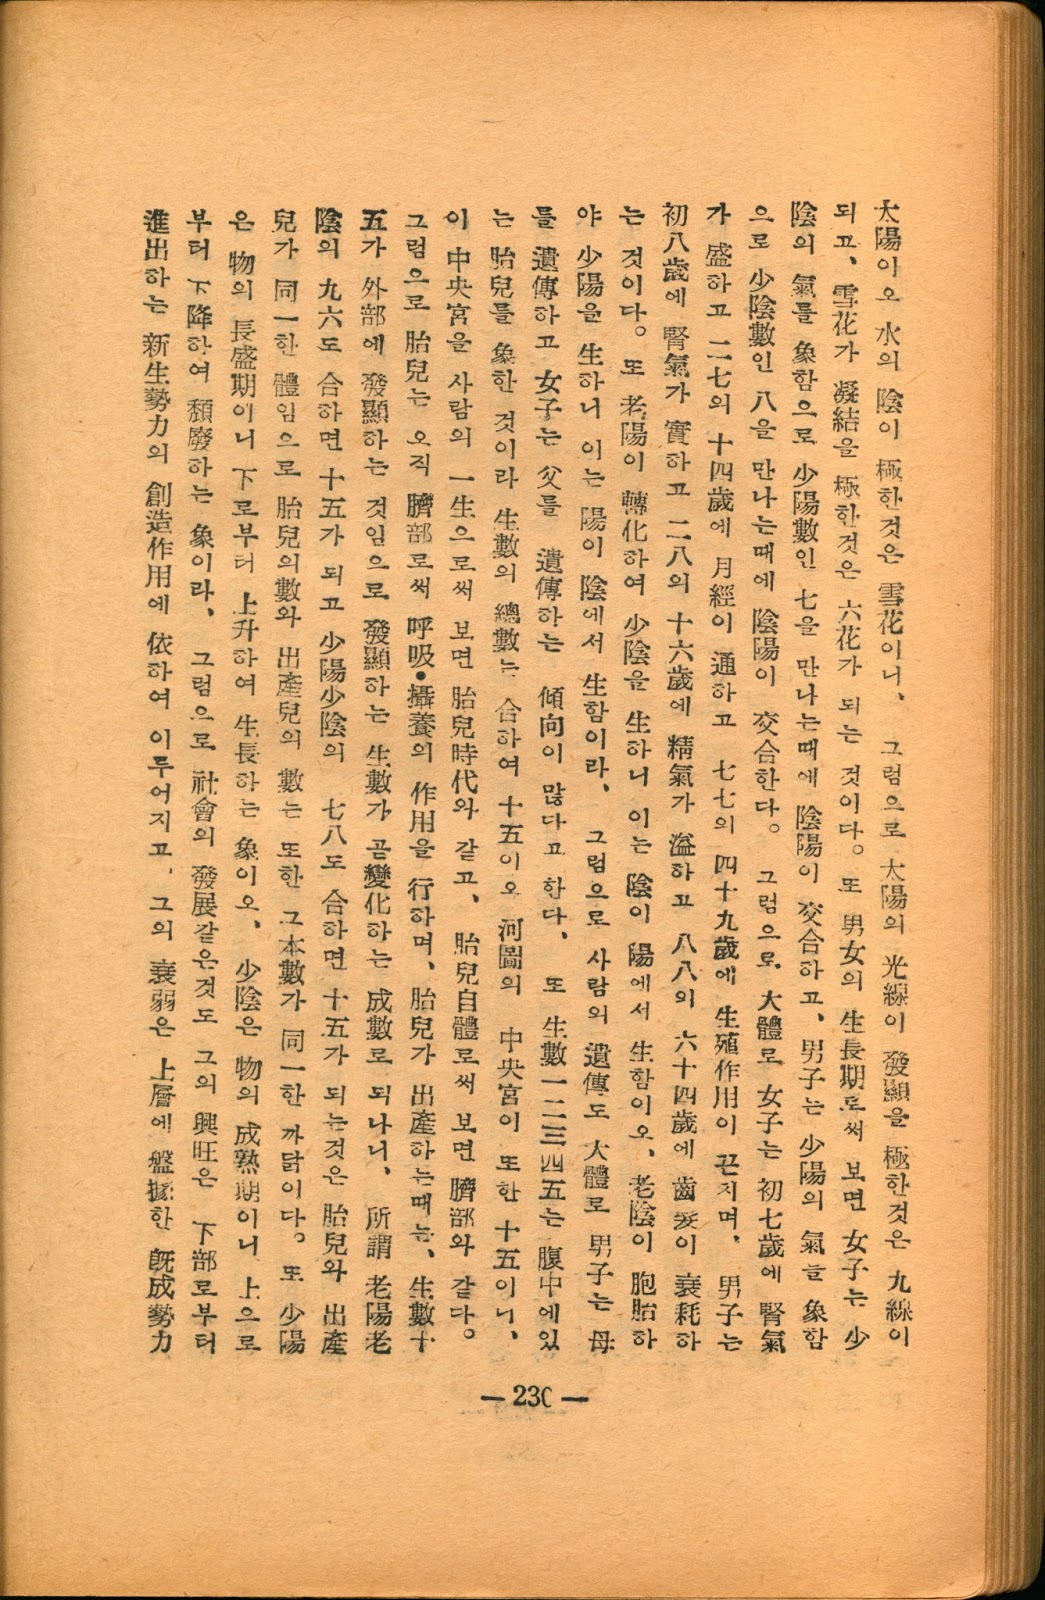 太陽이오 水의 陰이 極한것은 雪花이니、 그럼으로 太陽의 光線이 發顯을 極한것은 九線이
되고、雪花가 凝結을 極한것은 六花가 되는 것이다。또 男女의 生長期로써 보면 女子는 少
陰의 氣를 象함으로 少陽數인 七을 만나는때에 陰陽이 交合하고、男子는 少陽의 氣를 象함
으로 少陰數인 八을 만나는때에 陰陽이 交合한다。그럼으로 大體로 女子는 初七歲에 腎氣
가 盛하고 二七의 十四歲에 月經이 通하고 七七의 四十九歲에 生殖作用이 끈치며、 男子는
初八歲에 腎氣가 實하고 二八의 十六歲에 精氣가 溢하고 八八의 六十四歲에 齒髮이 衰耗하
는 것이다。또 老陽이 轉化하여 少陰을 生하니 이는 陰이 陽에서 生함이오、老陰이 胞胎하
야 少陽을 生하니 이는 陽이 陰에서 生함이라、 그럼으로 사람의 遺傳도 大體로 男子는 母
를 遺傳하고 女子는 父를 遺傳하는 傾向이 많다고 한다、 또 生數一二三四五는 腹中에있
는 胎兒를 象한 것이라 生數의 總數는 合하여 十五이오 河圖의 中央宮이 또한 十五이니、
이 中央宮을 사람의 一生으로써 보면 胎兒時代와 같고、 胎兒自體로써 보면 臍部와 같다。
그럼으로 胎兒는 오직 臍部로써 呼吸•攝養의 作用을 行하며、胎兒가 出產하는때는、生數十
五가 外部에 發顯하는 것임으로 發顯하는 生數가 곧變化하는 成數로 되나니、 所謂 老陽老
陰의 九六도 合하면 十五가 되고 少陽少陰의 七八도 合하면 十五가 되는것은 胎兒와 出產
兒가 同一한 體임으로 胎兒의數와 出產兒의 數는 또한 그本數가 同一한 까닭이다。또 少陽
은 物의 長盛期이니 下로부터 上升하여 生長하는 象이오、 少陰은 物의 成熟期이니 上으로
부터 下降하여 頹廢하는 象이라、 그럼으로 社會의 發展같은것도 그의 興旺은 下部로부터
進出하는 新生勢力의 創造作用에 依하여 이루어지고、그의 衰弱은 上層에 盤據한 旣成勢力
— 230 —